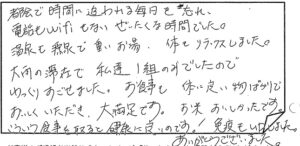 都会で時間に追われる毎日を忘れ、
電話もwifiもないぜいたくな時間でした。
温泉も源泉で良いお湯、体もリラックスしました。
大向の滞在で私達1組のみでしたので
ゆっくりすごせました。お食事も体に良い物ばかりで
おいしくいただき、大満足です。お米おいしかったです。
いろいろ食事を取ると健康に良いのです。免疫も
ありがとうございました。